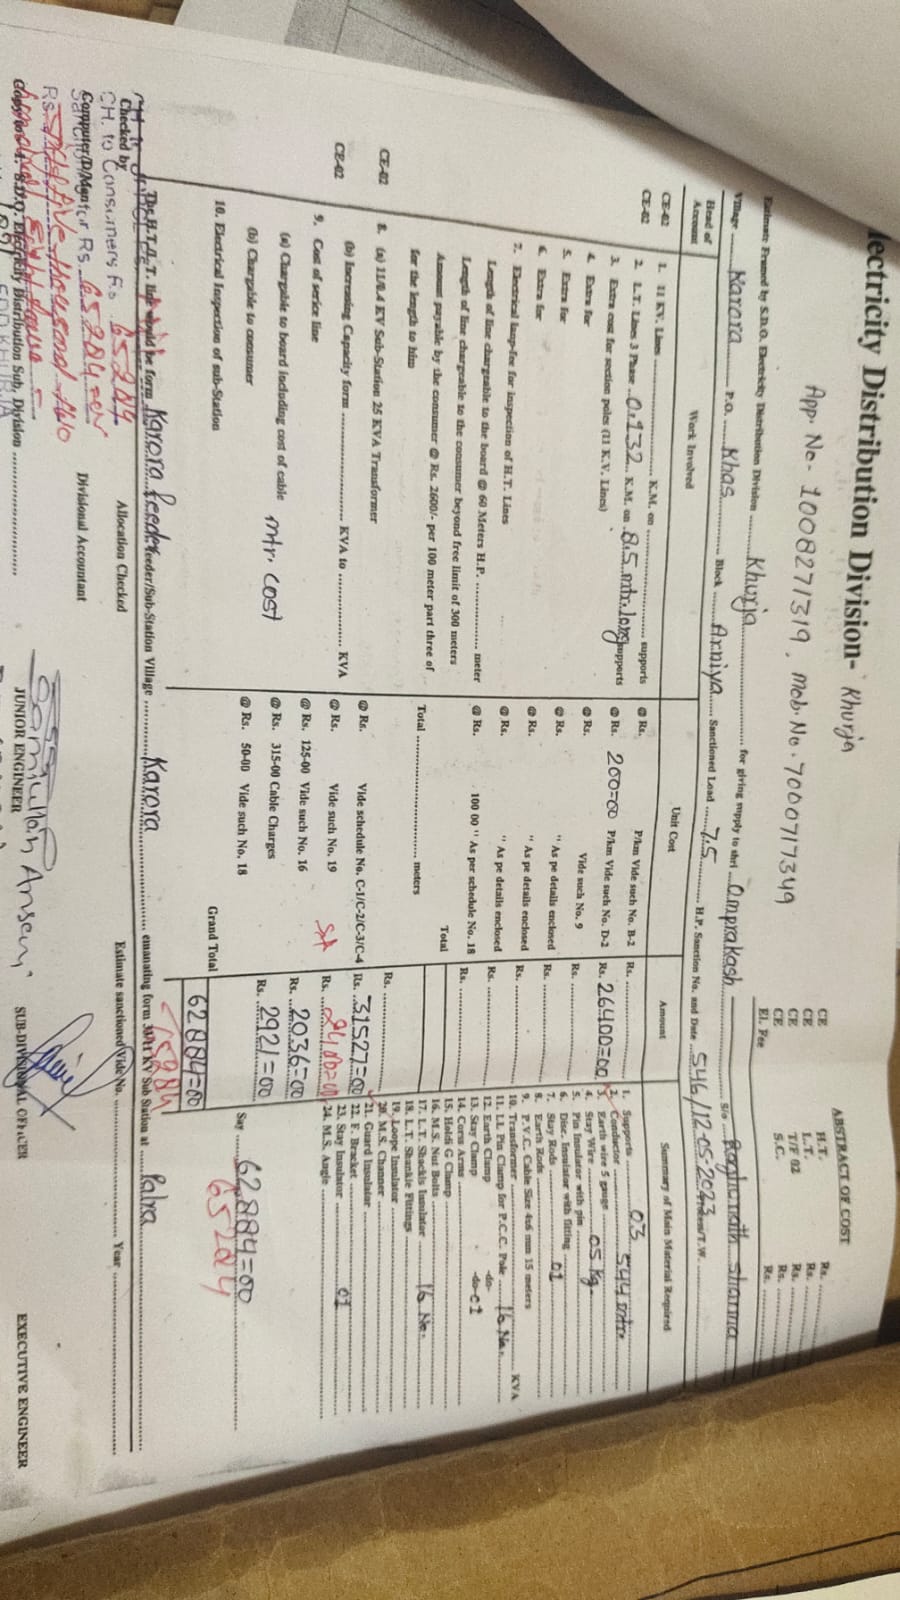 lectricity Distribution Division- Khurja
App. No- 1008271319, Mob. No. 7000717349
ABSTRACT OF COST
CE H.T. Rs.
CE L.T. Rs.
CE T/F 02 Rs.
CE S.C. Rs.
El. Fee Rs.
Estimate Framed by S.D.O. Electricity Distribution Division Khurja for giving supply to shri Omprakash S/o Raghunath Sharma
Village Karora P.O. Khas Block Arniya Sanctioned Load 7.5 H.P. Sanction No. and Date 546/12-05-2023 /T.W.
Head of Account Work Involved Unit Cost Amount Summary of Main Material Required
CE-02 1. 11 KV. Lines K.M. on supports @ Rs. P/km Vide such No. B-2 Rs.
CE-02 2. L.T. Lines 3 Phase 0.132 K.M. on 8.5 mtr. long supports @ Rs. 200=00 P/km Vide such No. D-2 Rs. 26400=00
3. Extra cost for section poles (11 K.V. Lines) @ Rs. Vide such No. 9 Rs.
4. Extra for @ Rs. " As pe details enclosed Rs.
5. Extra for @ Rs. " As pe details enclosed Rs.
6. Extra for @ Rs. " As pe details enclosed Rs.
7. Electrical Insp-fee for inspection of H.T. Lines @ Rs. 100 00 " As per schedule No. 18 Rs.
Length of line chargeable to the board @ 60 Meters H.P. meter Total
Length of line chargeable to the consumer beyond free limit of 300 meters
Amount payable by the consumer @ Rs. 2600/- per 100 meter part three of Total meters
for the length to him
CE-02 8. (a) 11/0.4 KV Sub-Station 25 KVA Transformer @ Rs. Vide schedule No. C-1/C-2/C-3/C-4 Rs. 31527=00
CE-02 (b) Increasing Capacity form KVA to KVA @ Rs. Vide such No. 19 Rs.
9. Cost of serice line @ Rs. 125-00 Vide such No. 16 Rs. 2036=00
(a) Chargable to board including cost of cable mtr. cost @ Rs. 315-00 Cable Charges Rs. 2921=00
(b) Chargable to consumer @ Rs. 50-00 Vide such No. 18
10. Electrical Inspection of sub-Station Grand Total 62884=00
1. Supports 03
2. Conductor 544 mtr.
3. Earth wire 5 gauge
4. Stay Wire 05 kg.
5. Pin Insulator with pin
6. Disc. Insulator with fitting
7. Stay Rods 01
8. Earth Rods
9. P.V.C. Cable Size 4x6 mm 15 meters
10. Transformer KVA
11. I.I. Pin Clamp for P.C.C. Pole 16 No.
12. Earth Clamp -do-
13. Stay Clamp -do- 01
14. Corss Arms
15. Holdi Ge Clamp
16. M.S. Nut Bolts
17. L.T. Shackis Insulator 16 No.
18. L.T. Shankle Fittings
19. Loope Insulator
20. M.S. Channer
21. Guard Insulator
22. F. Bracket
23. Stay Insulator 01
24. M.S. Angle
Say 62884=00
65284
The H.T./L.T. line would be form Karora feeder feeder/Sub-Station Village Karora emanating form 33/11 KV Sub Station at Palra
Checked by Allocation Checked Estimate sanctioned Vide No. Year
CH. to Consumers Rs. 65284
Computer/D/Man Divisional Accountant
for Rs. 65284
Samiullah Ansari
JUNIOR ENGINEER SUB-DIVISIONAL OFFICER EXECUTIVE ENGINEER
Copy to: 1. S.D.O. Electricity Distribution Sub, Division